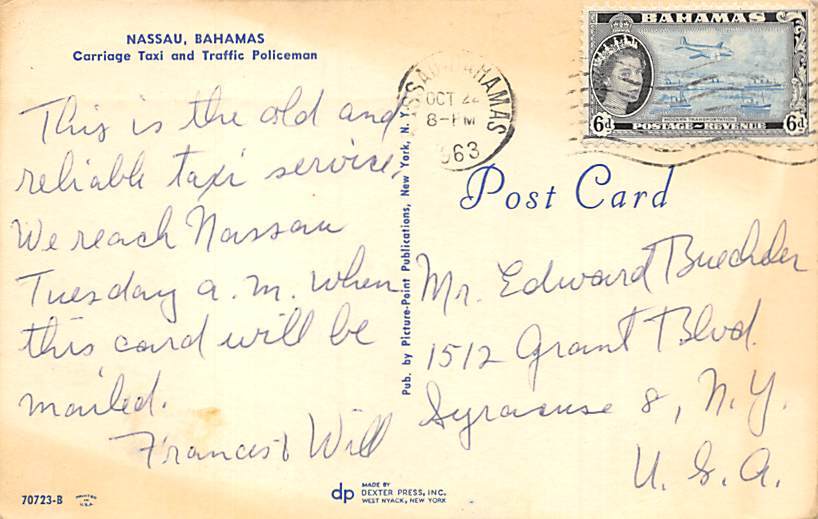 NASSAU, BAHAMAS
Carriage Taxi and Traffic Policeman
This is the old and
reliable taxi service.
We reach Nassau
Tuesday a.m. when
this card will be
mailed.
Frances & Will
70723-B
PRINTED
IN
U.S.A.
Pub. by Picture-Point Publications, New York, N. Y.
dp
MADE BY
DEXTER PRESS, INC.
WEST NYACK, NEW YORK
NASSAU BAHAMAS
OCT 22
8-PM
1963
BAHAMAS
6d
MODERN TRANSPORTATION
POSTAGE & REVENUE
6d
Post Card
Mr. Edward
1512 Grant Blvd.
Syracuse 8, N.Y.
U.S.A.